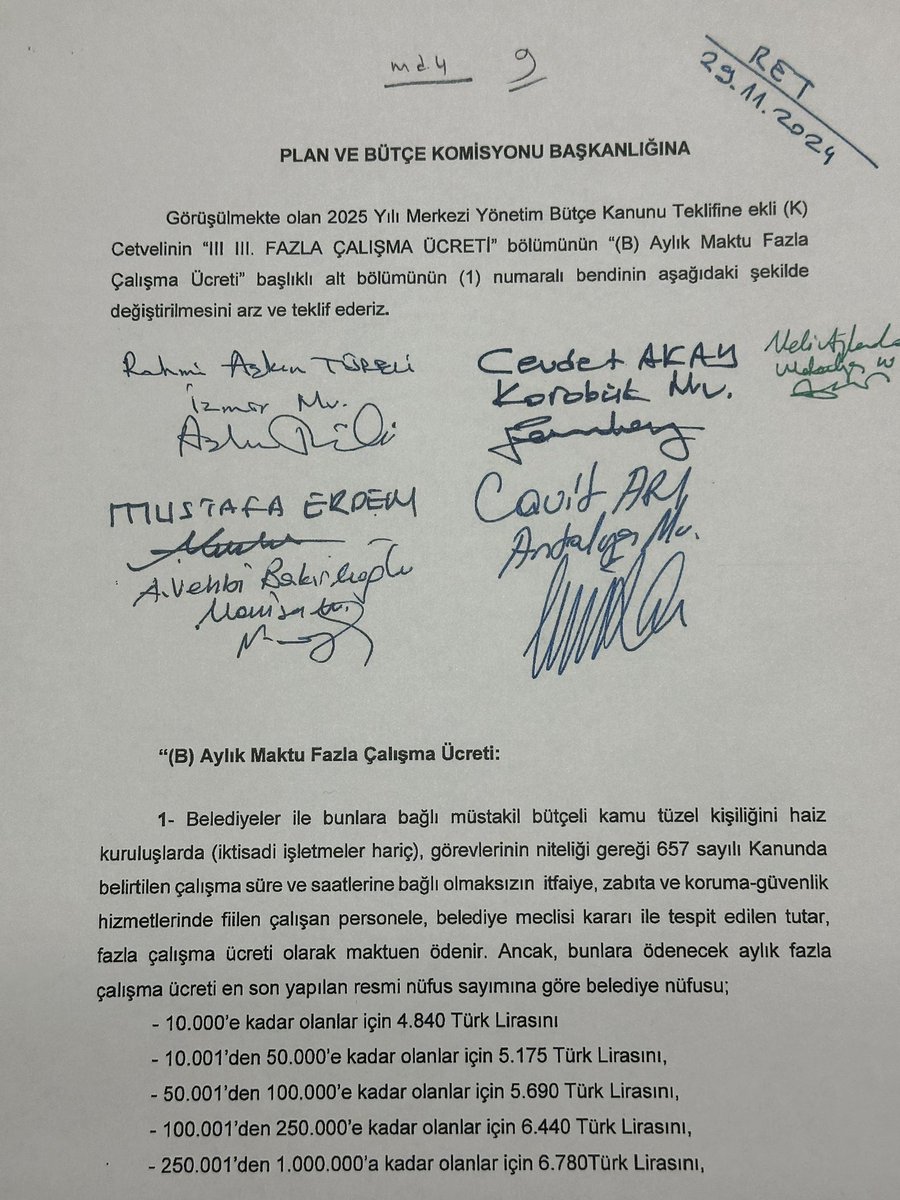 md.4 9
RET
29.11.2024
PLAN VE BÜTÇE KOMİSYONU BAŞKANLIĞINA
Görüşülmekte olan 2025 Yılı Merkezi Yönetim Bütçe Kanunu Teklifine ekli (K)
Cetvelinin “III III. FAZLA ÇALIŞMA ÜCRETİ” bölümünün “(B) Aylık Maktu Fazla
Çalışma Ücreti” başlıklı alt bölümünün (1) numaralı bendinin aşağıdaki şekilde
değiştirilmesini arz ve teklif ederiz.
Rahmi Aşkın TÜRELİ
İzmir Mv.
Cevdet AKAY
Karabük Mv.
Veli Ağbaba
Malatya
MUSTAFA ERDEM
Cavit ARI
Antalya Mv.
A.Vehbi Bakırlıoğlu
Manisa
“(B) Aylık Maktu Fazla Çalışma Ücreti:
1- Belediyeler ile bunlara bağlı müstakil bütçeli kamu tüzel kişiliğini haiz
kuruluşlarda (iktisadi işletmeler hariç), görevlerinin niteliği gereği 657 sayılı Kanunda
belirtilen çalışma süre ve saatlerine bağlı olmaksızın itfaiye, zabıta ve koruma-güvenlik
hizmetlerinde fiilen çalışan personele, belediye meclisi kararı ile tespit edilen tutar,
fazla çalışma ücreti olarak maktuen ödenir. Ancak, bunlara ödenecek aylık fazla
çalışma ücreti en son yapılan resmi nüfus sayımına göre belediye nüfusu;
- 10.000’e kadar olanlar için 4.840 Türk Lirasını
- 10.001’den 50.000’e kadar olanlar için 5.175 Türk Lirasını,
- 50.001’den 100.000’e kadar olanlar için 5.690 Türk Lirasını,
- 100.001’den 250.000’e kadar olanlar için 6.440 Türk Lirasını,
- 250.001’den 1.000.000’a kadar olanlar için 6.780Türk Lirasını,